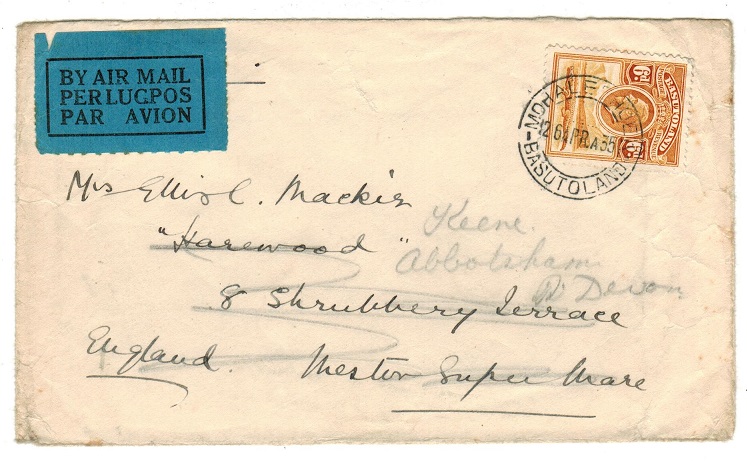 BY AIR MAIL
PER LUGPOS
PAR AVION
BASUTOLAND
6D.
MOHALE
26 APR 35
BASUTOLAND
Mrs Ellis C. Mackie
"Harewood"
8 Shrubbery Terrace
Weston Super Mare
England.
Keene.
Abbotsham
N. Devon